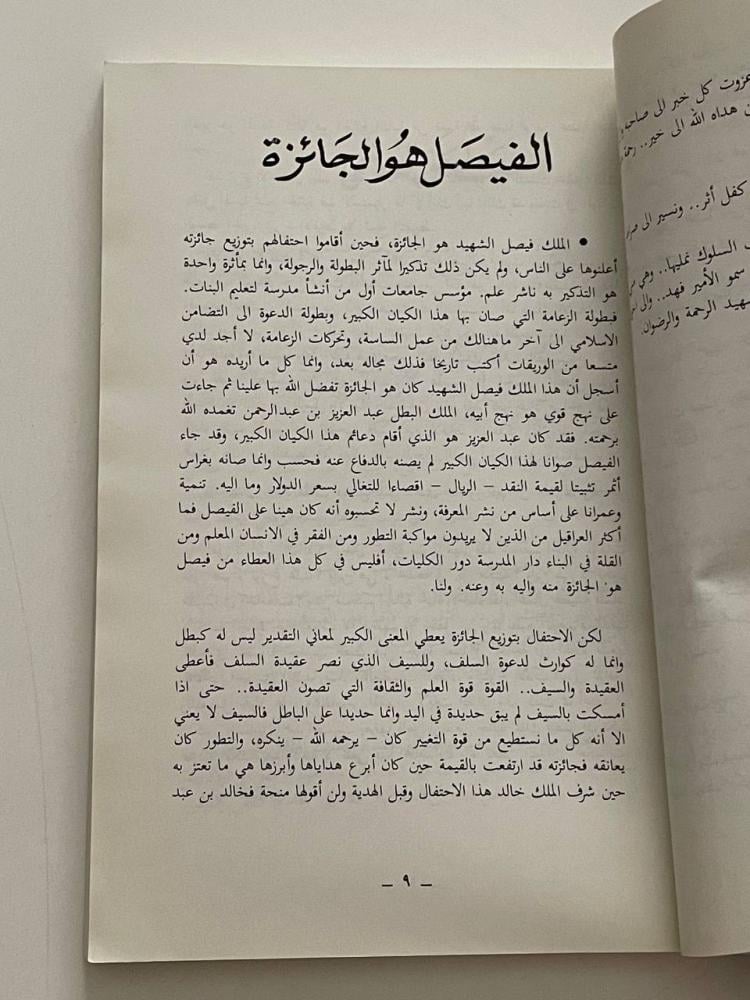 الفيصل هو الجائزة
• الملك فيصل الشهيد هو الجائزة، فحين أقاموا احتفالهم بتوزيع جائزته
أعلنوها على الناس، ولم يكن ذلك تذكيرا لمآثر البطولة والرجولة، وانما بمأثرة واحدة
هو التذكير به ناشر علم. مؤسس جامعات أول من أنشأ مدرسة لتعليم البنات.
فبطولة الزعامة التي صان بها هذا الكيان الكبير، وبطولة الدعوة الى التضامن
الاسلامي الى آخر ماهنالك من عمل الساسة، وتحركات الزعامة، لا أجد لدي
متسعا من الوريقات أكتب تاريخا فذلك مجاله بعد، وانما كل ما أريده هو أن
أسجل أن هذا الملك فيصل الشهيد كان هو الجائزة تفضل الله بها علينا ثم جاءت
على نهج قوي هو نهج أبيه، الملك البطل عبد العزيز بن عبدالرحمن تغمده الله
برحمته. فقد كان عبد العزيز هو الذي أقام دعائم هذا الكيان الكبير، وقد جاء
الفيصل صوانا لهذا الكيان الكبير لم يصنه بالدفاع عنه فحسب وانما صانه بغراس
أثمر تثبيتا لقيمة النقد – الريال – اقصاءا للتغالي بسعر الدولار وما اليه. تنمية
وعمرانا على أساس من نشر المعرفة، ونشر لا تحسبوه أنه كان هينا على الفيصل فما
أكثر العراقيل من الذين لا يريدون مواكبة التطور ومن الفقر في الانسان المعلم ومن
القلة في البناء دار المدرسة دور الكليات، أفليس في كل هذا العطاء من فيصل
هو الجائزة منه واليه به وعنه. ولنا.
لكن الاحتفال بتوزيع الجائزة يعطي المعنى الكبير لمعاني التقدير ليس له كبطل
وانما له كوارث لدعوة السلف، وللسيف الذي نصر عقيدة السلف فأعطى
العقيدة والسيف.. القوة قوة العلم والثقافة التي تصون العقيدة.. حتى اذا
أمسكت بالسيف لم يبق حديدة في اليد وانما حديدا على الباطل فالسيف لا يعني
الا أنه كل ما نستطيع من قوة التغيير كان – يرحمه الله – ينكره، والتطور كان
يعانقه فجائزته قد ارتفعت بالقيمة حين كان أبرع هداياها وأبرزها هي ما تعتز به
حين شرف الملك خالد هذا الاحتفال وقبل الهدية ولن أقولها منحة فخالد بن عبد
– ٩ –
عزوت كل خير الى صاحبه
هداه الله الى خير..
كفل أثر.. ونسير الى
السلوك نمليها.. وهي
سمو الأمير فهد.. والى
الرحمة والرضوان.